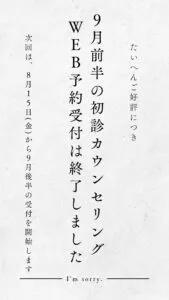 たいへんご好評につき
９月前半の初診カウンセリング
ＷＥＢ予約受付は終了しました
次回は、８月１５日(金)から９月後半の受付を開始します
I'm sorry.